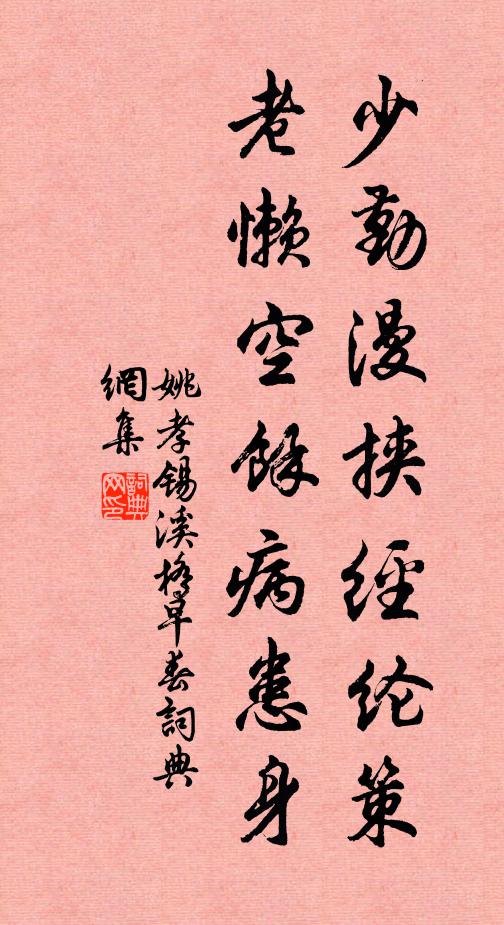 少勤漫挟經纶策
老懒空餘病患身
姚孝锡溪桥早春詞典
網集
詞典
网印